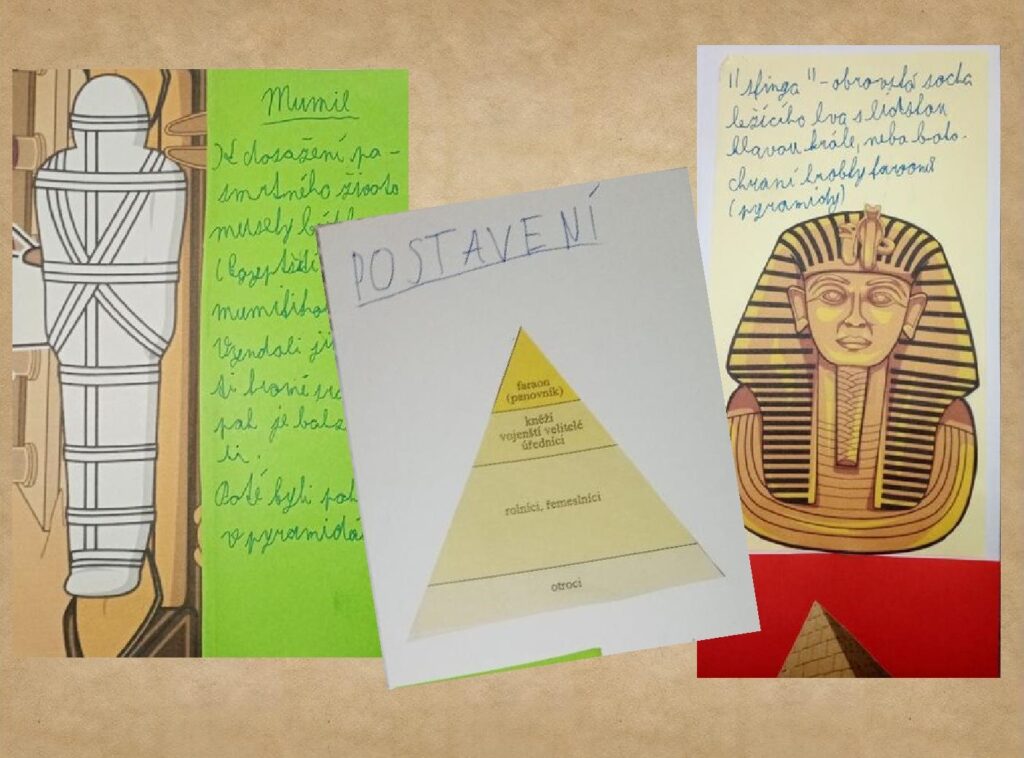 Mumie
K dosažení po-
smrtného života
musely být
(Egyptští
Vyndali
pak je
li.
Poté byli
v
POSTAVENÍ
faraon
(panovník)
kněží
vojenští velitelé
úředníci
rolníci, řemeslníci
otroci
"sfinga" - obrovská socha
ležícího lva s lidskou
hlavou krále, nebo boha.
chrání hrobky faraonů
(pyramidy)